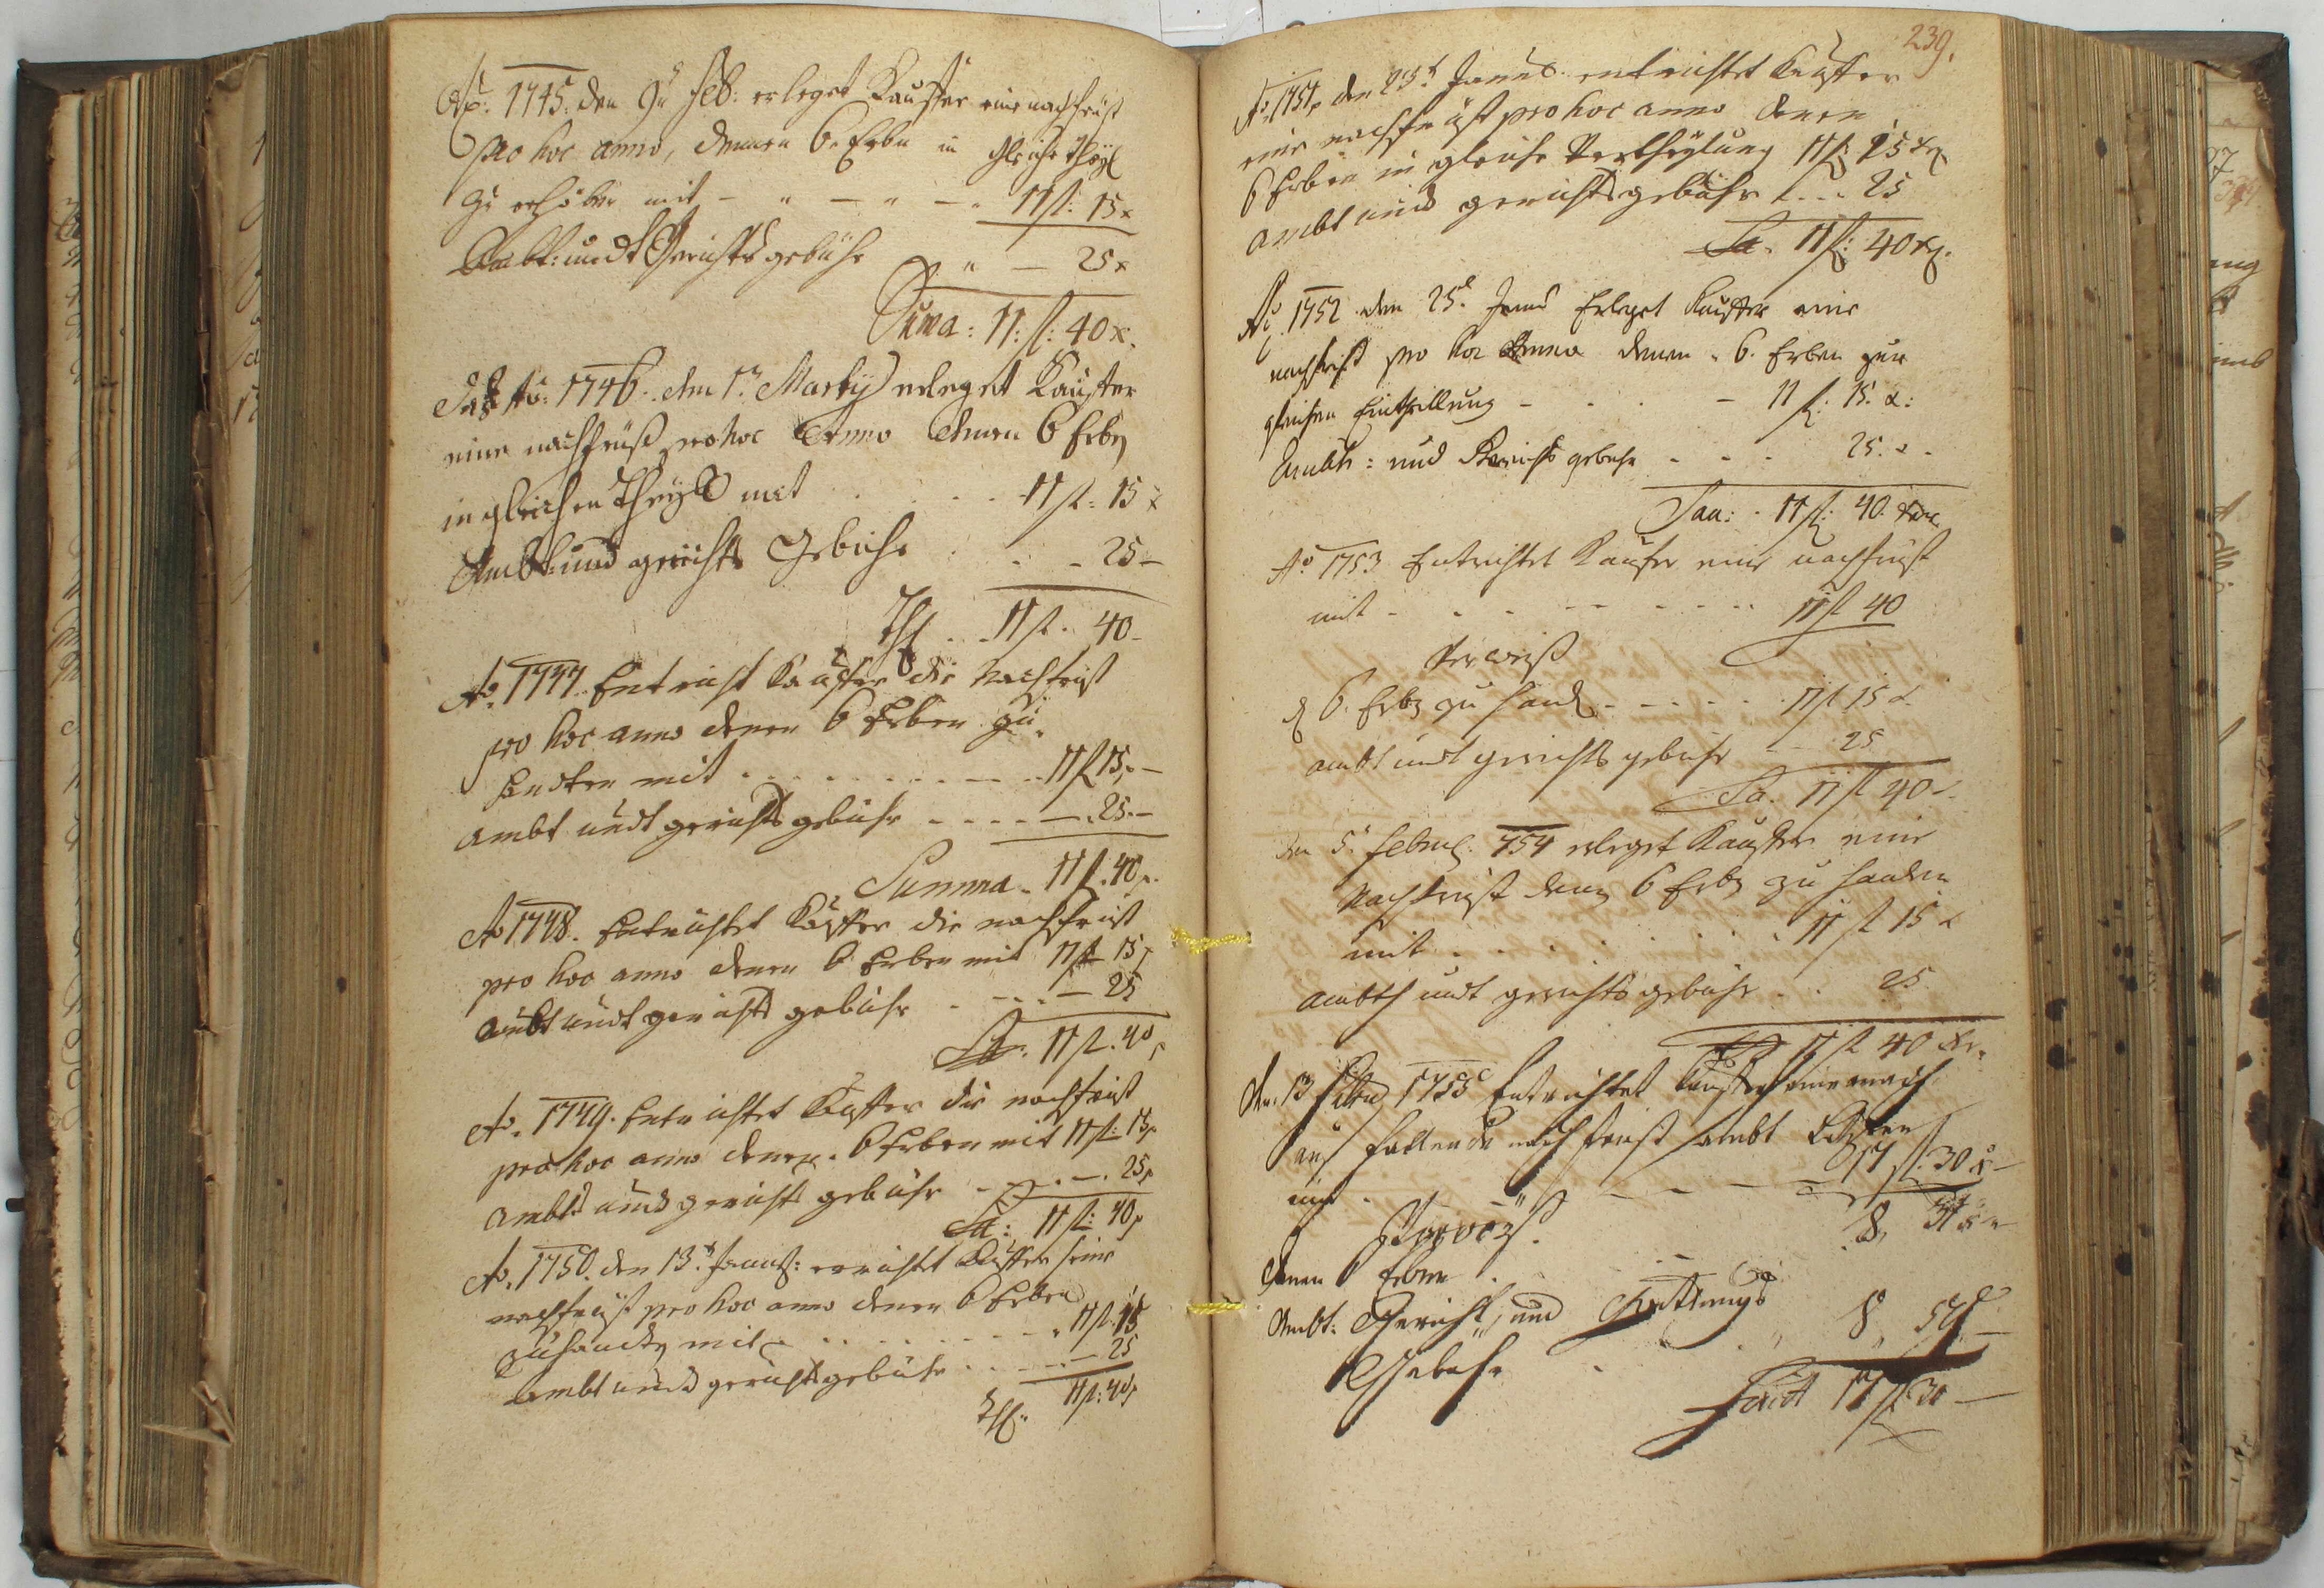 Aõ: 1745: den 9n Feb: erleget Kauffer eine nachfrüst
pro hoc anno, dennen 6. Erben in gleiche theyl
zu erhöben mit - " - " - " 11 fl: 15 x
Ambt: undt Gerichts gebühr " - 25 x
Suma: 11: fl: 40 x.
Aõ: 1746. den 1n Marty erleget Kauffer
eine nachfrüst pro hoc Anno denen 6 Erben
in gleichen theyll mit . . . . 11 fl: 15 x
Ambt: und gerichts Gebühr . . - 25 -
11 fl. 40 -
Ao. 1747. Entricht Kauffer die Nachfrist
pro hoc anno denen 6 Erben zu
handten mit . . . . . 11 fl 15 . -
ambt undt gerichts gebühr - - - - 25. -
Summa. 11 fl. 40.
Ao 1748. Entrichtet Kauffer die nachfrist
pro hoc anno denen 6 Erben mit 11 fl 15
ambt undt gerichts gebühr . - . . - 25
Sa. 11 fl. 40
Ao. 1749. Entrichtet Kauffer die nachfrist
pro hoc anno denen. 6 Erben mit 11 fl: 15
ambt undt gerichts gebühr - - . - . 25
Sa: 11 fl: 40
Ao. 1750. den 13. Januß: Kauffer seine
nachfrist pro hoc anno denen 6 Erben
zuhandten mit . . . . . 11 fl. 15
ambt undt gerichtsgebühr . . . . - 25
11 fl: 40
239.
Ao. 1751. den 25t Janus. entrichtet Kauffer
eine nachfrist pro hoc anno denen
6 Erben in gleiche Vertheylung 11 fl: 15 xr
ambt und gerichtsgebühr . . . 25
Sa. 11 fl: 40 xr.
Ao. 1752 den 25t. Janu Erleget Kauffer eine
nachfrist pro hoc Anno denen . 6. Erben zur
gleichen Eintheillung - . . . - 11 fl: 15. x:
Ambts: und Gerichts gebühr . - - . 25. x.
Saa: . 11 fl: 40. xr.
Ao 1753 Entrichtet Kaufer eine nachfrist
mit - - - - - - - - - - 11 fl 40
Verweiß
d 6. Erben zu handen - - - - . . 11 fl 15 x.
ambt undt gerichts gebühr - - 25
Sa. 11 fl 40 x.
den 5. Febru. 754 erleget Kauffer eine
Nachfrist denen 6 Erben zu handen
mit . . . . . . . . 11 fl 15 x
ambth undt gerichts gebühr . . 25
11 fl 40 xr.
den. 13 1755 Entrichtet Kauffer eine nach
fallende nachfrist sambt
mit . - - - - - 17 fl: 30 x -
Verweiß.
denen 6 Erben . . . 8,
Ambt: Gericht, und Quittungs
Gebühr . . . 8
Facit 17 fl 30 -